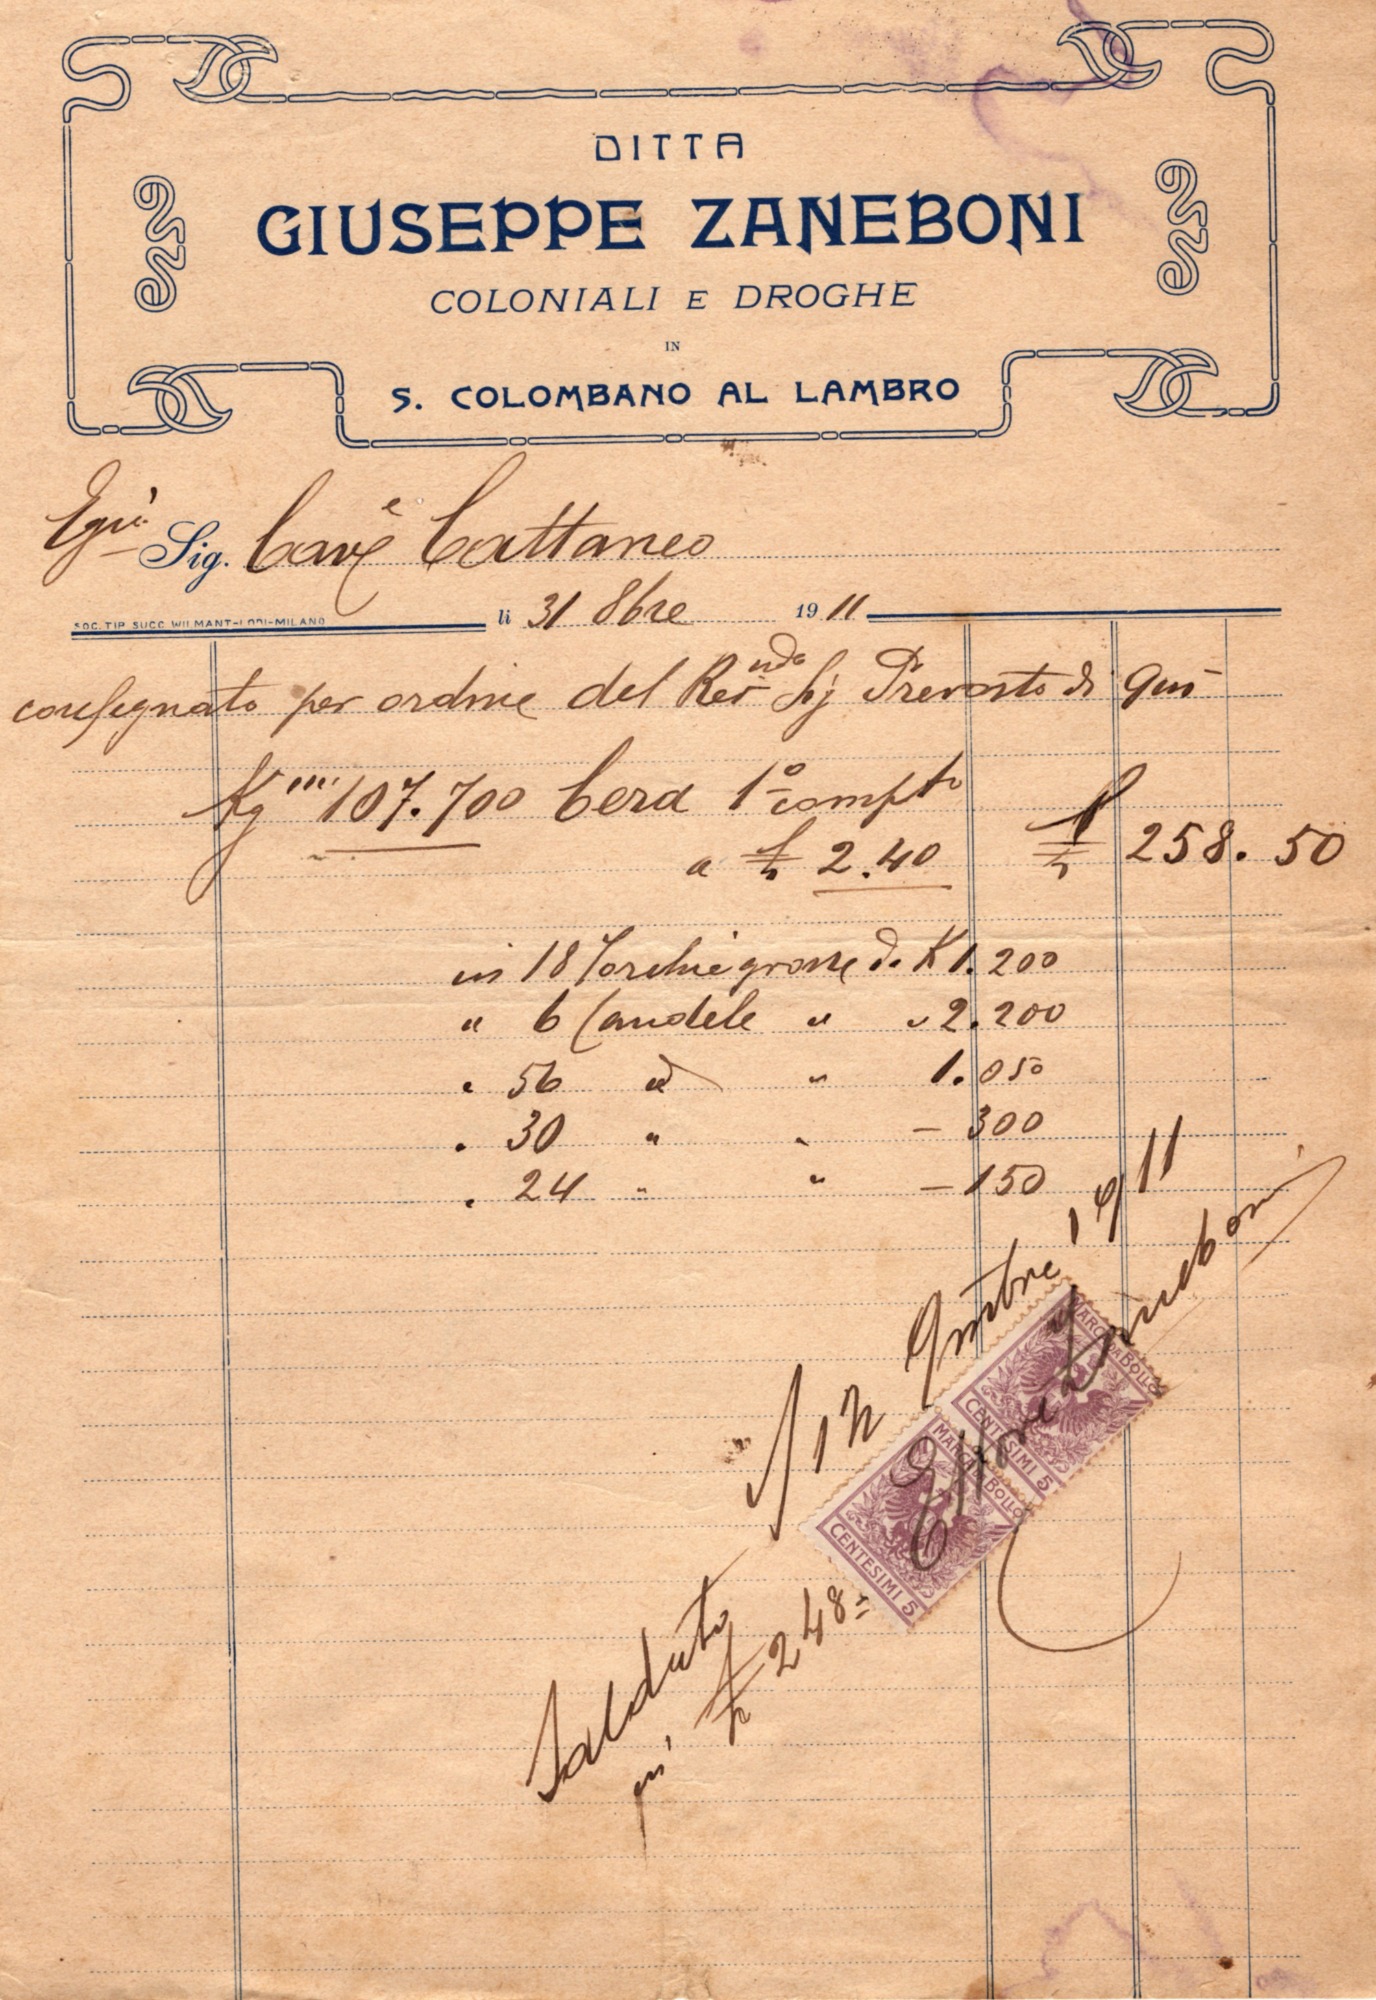 DITTA
GIUSEPPE ZANEBONI
COLONIALI E DROGHE
IN
S. COLOMBANO AL LAMBRO
Egr. Sig. Cave Cattaneo
SOC. TIP. SUCC. WILMANT-LODI-MILANO
li 31 8bre 1911
consegnato per ordine del Revndo Sig Prevosto di qui
Kg 107.700 Cera 1º compto
a £ 2.40 £ 258.50
in 18 Torchie grosse di K 1.200
" 6 Candele " " 2.200
" 56 id " 1.050
" 30 " " - 300
" 24 " " - 150
Saldato / 12 9mbre 1911
in £ 248=
Ettore Zaneboni
MARCA DA BOLLO
CENTESIMI 5
MARCA DA BOLLO
CENTESIMI 5